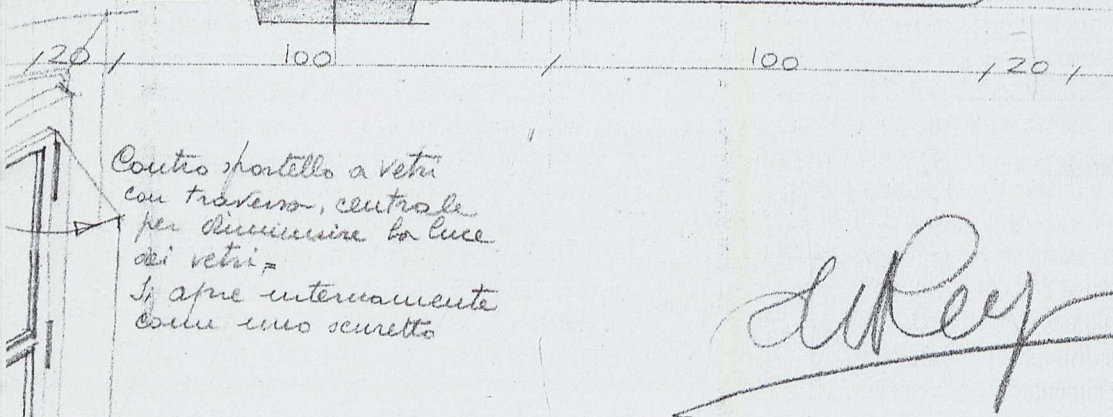 20 100 100 20
Contro sportello a vetri
con traversa, centrale
per diminuire la luce
dei vetri =
Si apre internamente
come uno scuretto